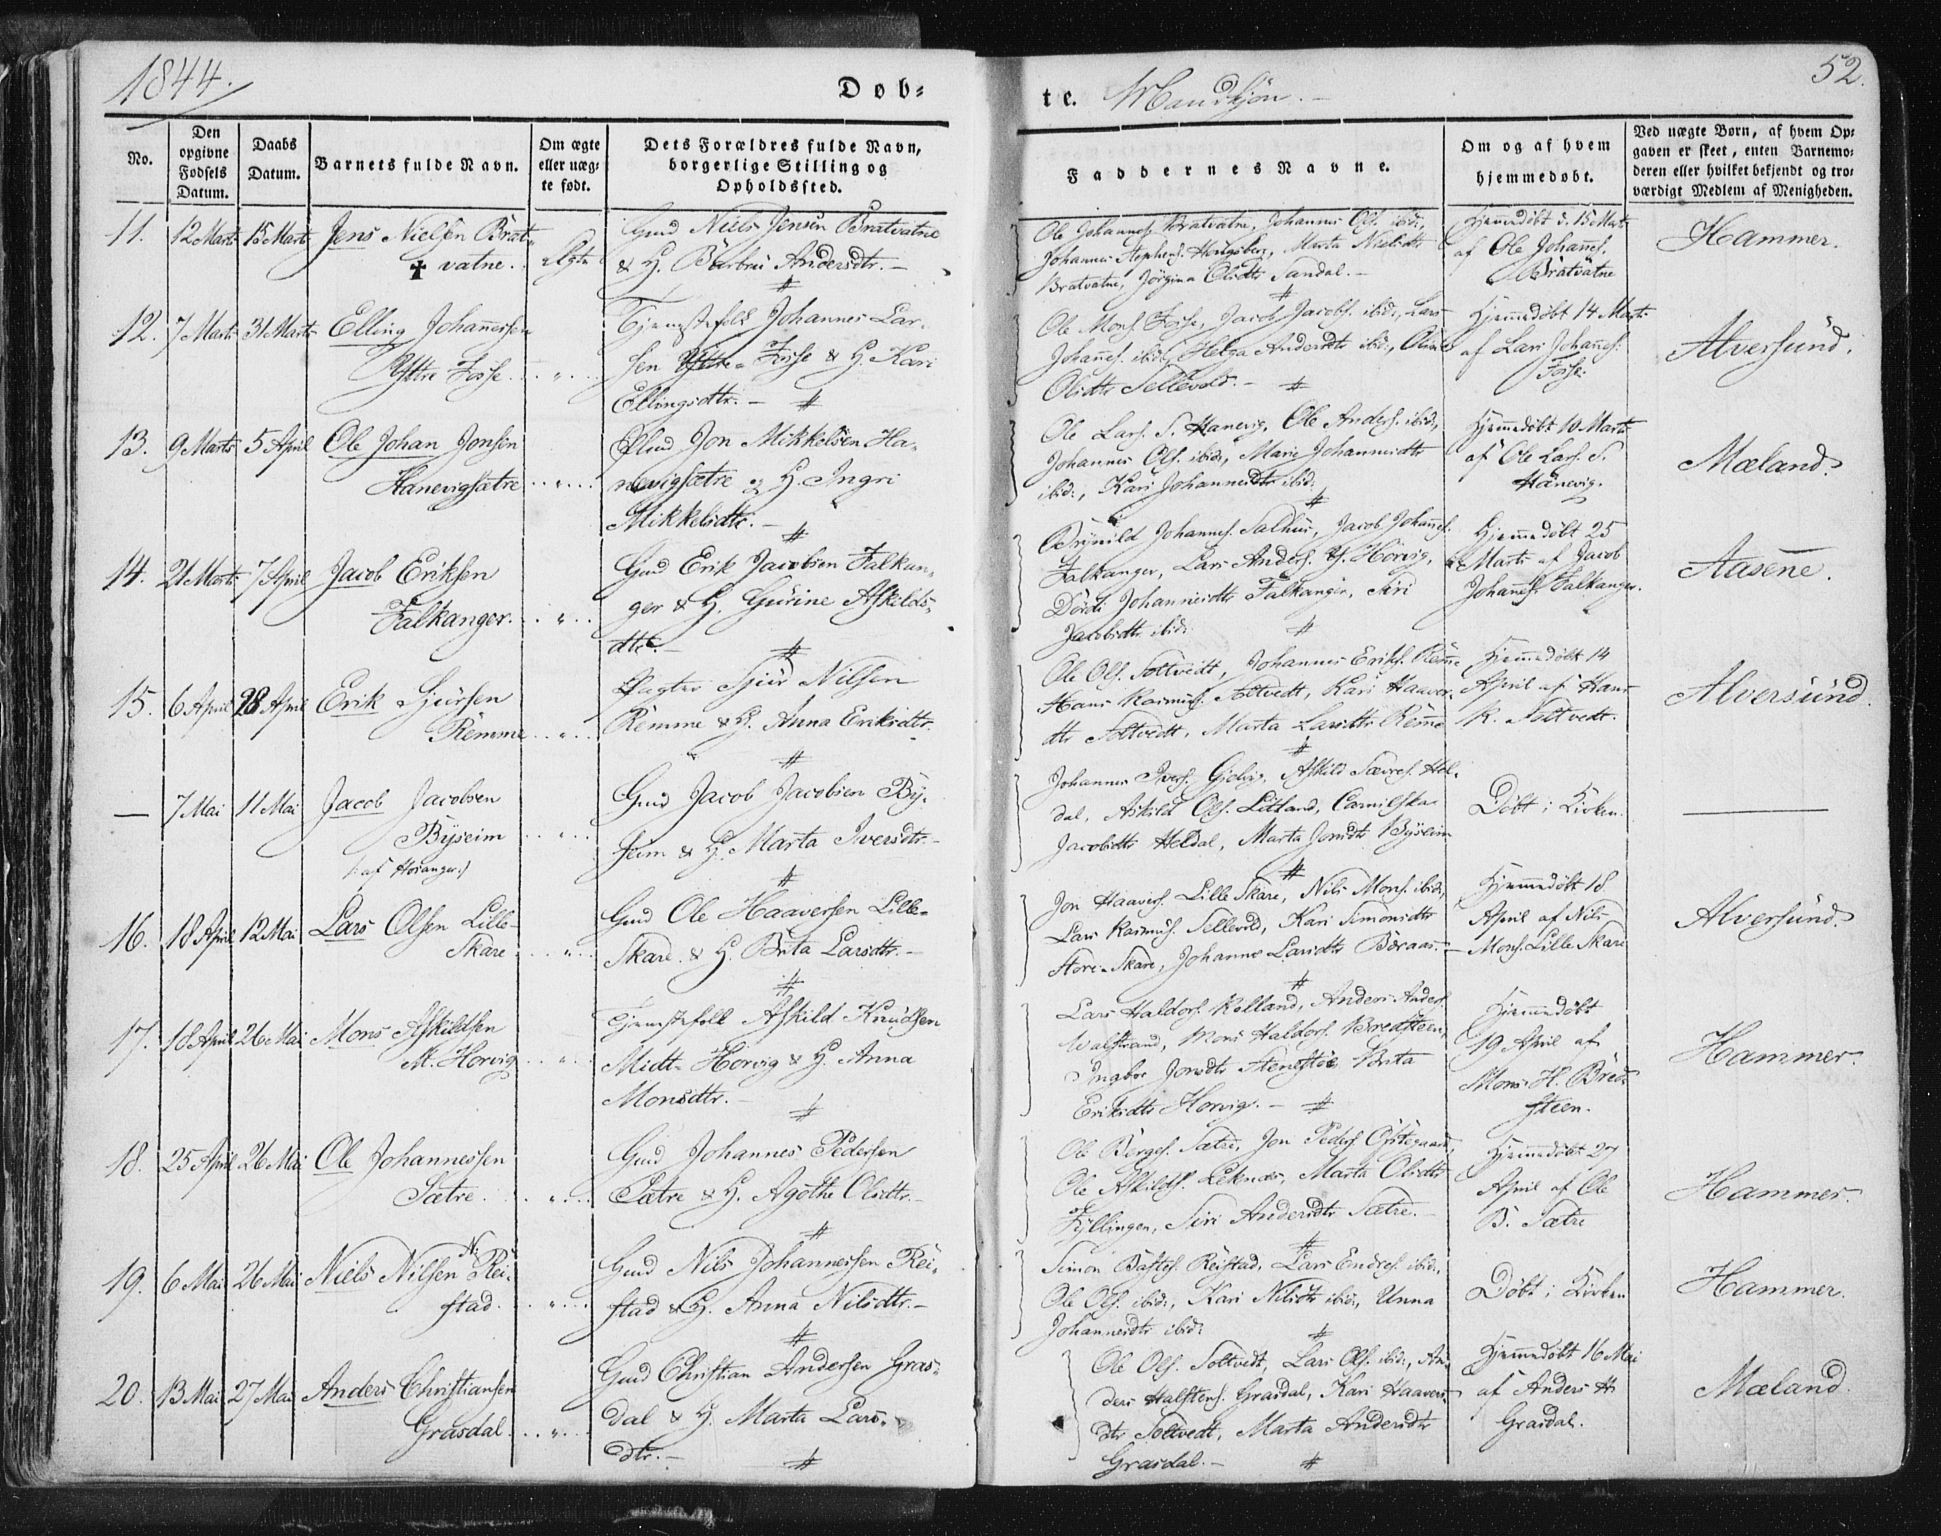 1844.
Døb-
te. Mandkjön.
52.
No.
Den opgivne Fødsels Datum.
Daabs Datum.
Barnets fulde Navn.
Om ægte eller uægte født.
Dets Forældres fulde Navn, borgerlige Stilling og Opholdssted.
Faddernes Navne.
Om og af hvem hjemmedøbt.
Ved uægte Børn, af hvem Opgaven er skeet, enten Barnemoderen eller hvilket bekjendt og troværdigt Medlem af Menigheden.
11. 12 Marts 15 Marts Jens Nielsen Brat-
vatne. Ægte
Gmd Niels Jensen Bratvatne
& H. Barbru Andersdtr.
Ole Johannes. Bratvatne, Johannes Ols. ibid:,
Johannes Stephens. Haugsberg, Marta Nielsdtr
Bratvatne, Jörgina Olsdtr Sandal.
Hjemmedöbt d. 15 Marts
af Ole Johans.
Bratvatne
Hammer.
12. 7 Marts 31 Marts Elling Johannessen
Yttre Fosse.
Tjenstefolk Johannes Lar-
sen Yttre-Fosse & H. Kari
Ellingsdtr.
Ole Mons. Fosse, Jacob Jacobs. ibid:, Lars
Johans. ibid:, Helga Andersdtr ibid:,
Olsdtr Sellevold.
Hjemmedöbt 14 Marts
af Lars Johans.
Fosse.
Alversund.
13. 9 Marts 5 April Ole Johan Jonsen
Hanevigsætre
Jon Mikkelsen Ha-
nevigsætre og H. Ingri
Mikkelsdtr.
Ole Lars. S. Hanevig, Ole Anders. ibid:,
Johannes Ols. ibid:, Marie Johannesdtr
ibid:, Kari Johannesdtr ibid:
Hjemmedöbt 10 Marts
af Ole Lars. S.
Hanevig.
Mæland.
14. 21 Marts 7 April Jacob Eriksen
Falkanger.
Gmd Erik Jacobsen Falkan-
ger & H. Gurine Askilds-
dtr.
Brynild Johannes. Salhus, Jacob Johans.
Falkanger, Lars Anders. Y. Hörvig,
Dorde Johannesdtr Falkanger, Siri
Jacobsdtr ibid:
Hjemmedöbt 25
Marts af Jacob
Johans. Falkanger.
Aasene.
15. 6 April 28 April Erik Sjursen
Remme
Sjur Nilsen
Remme & H. Anna Eriksdtr.
Ole Ols. Soltvedt, Johannes Eriks. Remme
Hans Rasmus. Soltvedt, Kari Haavers-
dtr Soltvedt, Marta Larsdtr Remme
Hjemmedöbt 14
April af Hans
R. Soltvedt.
Alversund.
— 7 Mai 11 Mai Jacob Jacobsen
Byseim
/: af Hosanger:/
Gmd Jacob Jacobsen By-
seim & H. Marta Iversdtr.
Johannes Ivers. Gjelvig, Askild Sævres. Hel-
dal, Askild Ols. Litland, Camilska
Jacobsdtr Heldal, Marta Jonsdtr Byseim
Döbt i Kirken.
—
16. 18 April 12 Mai Lars Olsen Lille-
Skare.
Gmd Ole Haaversen Lille-
Skare. & H. Brita Larsdtr.
Jon Haavers. Lille Skare, Nils Mons. ibid:,
Lars Rasmus. Sellevold, Kari Simonsdtr
Store-Skare, Johanne Larsdtr Børaas.
Hjemmedöbt 18
April af Nils
Mons. Lille Skare
Alversund.
17. 18 April 26 Mai Mons Askildsen
M. Horvig
Tjenstefolk Askild Knudsen
Midt-Horvig & H. Anna
Monsdtr.
Lars Haldors. Kolland, Anders Anders.
Walstrand, Mons Haldors. Bredsteen,
Ingbor Jonsdtr Stenestöe, Brita
Eriksdtr Horvig.
Hjemmedöbt
19 April af
Mons H. Bred-
steen.
Hammer.
18. 25 April 26 Mai Ole Johannessen
Sætre.
Gmd Johannes Pedersen
Sætre & H. Agathe Olsdtr.
Ole Börges. Sætre, Jon Peders. Ostegaard,
Ole Askilds. Leknæs, Marta Olsdtr
Fyllingen, Siri Andersdtr Sætre.
Hjemmedöbt 27
April af Ole
B. Sætre
Hammer.
19. 6 Mai 26 Mai Niels Nilsen N: Rei-
stad.
Gmd Nils Johannessen Rei-
stad & H. Anna Nilsdtr.
Simon Baстes. Reistad, Lars Endres. ibid:,
Ole Ols. ibid:, Kari Nilsdtr ibid:, Unna
Johannesdtr ibid:
Döbt i Kirken
Hammer.
20. 13 Mai 27 Mai Anders Christiansen
Grasdal.
Gmd Christian Andersen Gras-
dal & H. Marta Lars-
dtr.
Ole Ols. Soltvedt, Lars Ols. ibid:, An-
ders Halstens. Grasdal, Kari Haavers-
dtr Soltvedt, Marta Andersdtr
Grasdal.
Hjemmedöbt 16 Mai
af Anders H.
Grasdal.
Mæland